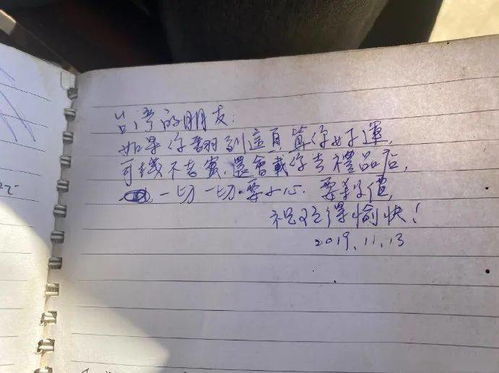 台灣的朋友:
如果你翻到這頁,算你好運,
司機不老實,還會載你去禮品店,
一切一切要小心.要殺價,
祝玩得愉快!
2019.11.13